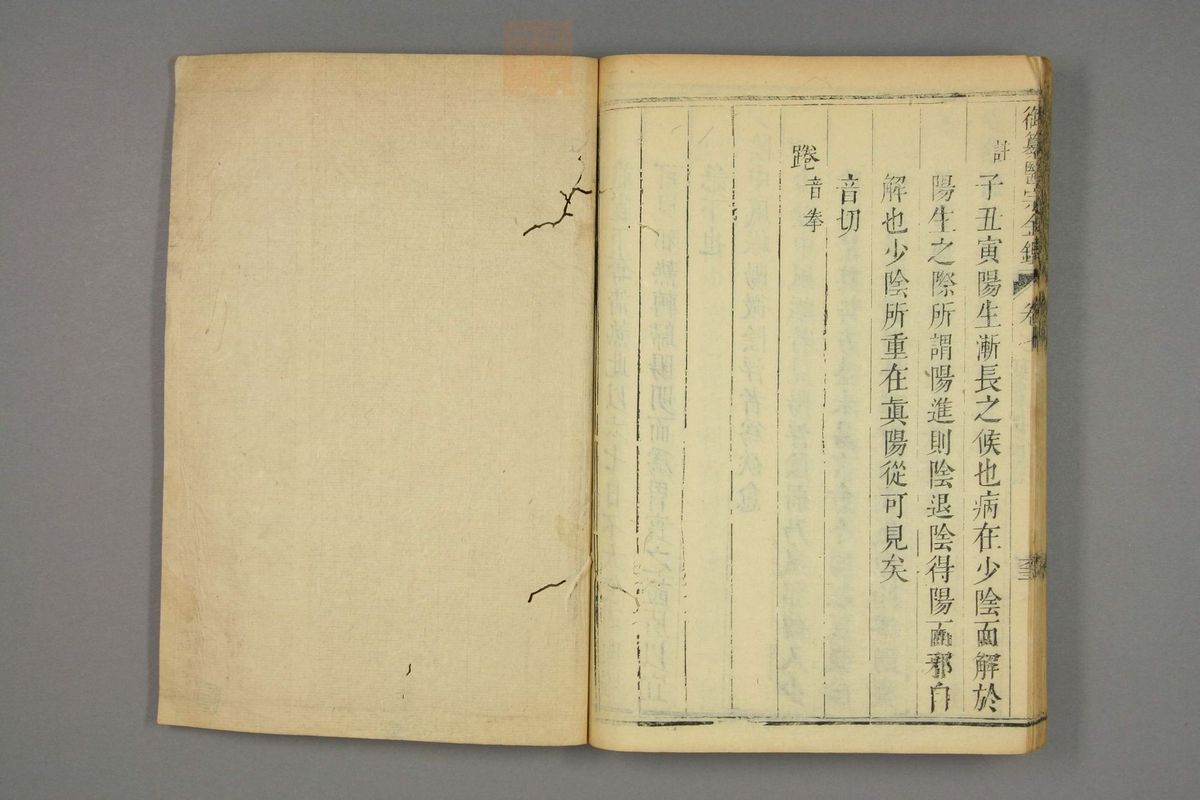 御纂醫宗金鑑 卷
註
子丑寅陽生漸長之候也病在少陰而解於
陽生之際所謂陽進則陰退陰得陽而邪自
解也少陰所重在眞陽從可見矣
音切
踡音拳